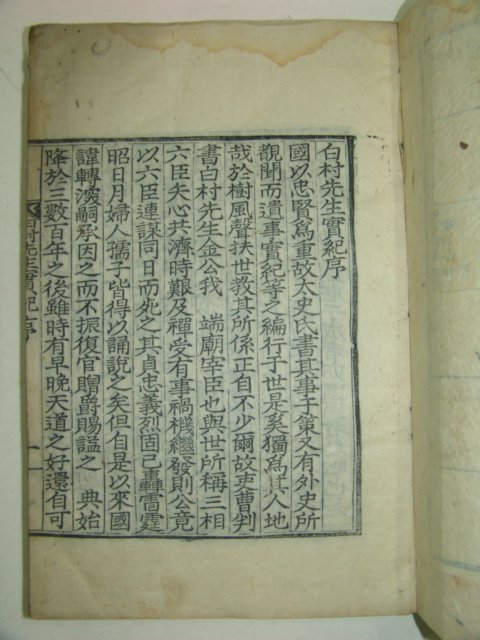 白村先生實紀序
國以忠賢爲重故太史氏書其事于策又有外史所
覩聞而遺事實紀等之編行于世是奚獨爲其人地
哉於樹風聲扶世敎其所係正自不少爾故吏曹判
書白村先生金公我 端廟宰臣也與世所稱三相
六臣矢心共濟時艱及禪受有事禍機繼發則公竟
以六臣連謀同日而死之其貞忠義烈固已轟雷霆
昭日月婦人孺子皆得以誦說之矣但自是以來國
諱轉深嗣承因之而不振復官贈爵賜謚之 典始
降於三數百年之後雖時有早晚天道之好還自可
白村先生實紀序
一